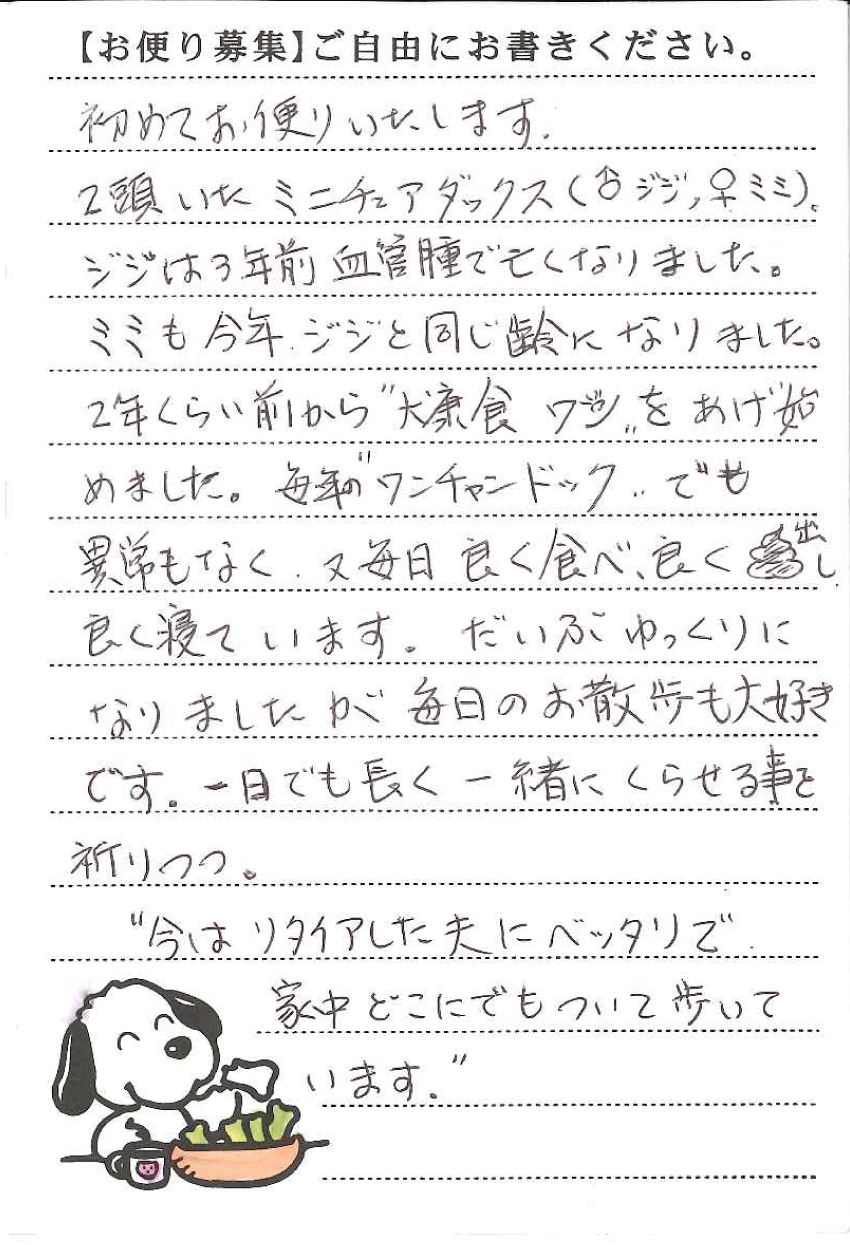 【お便り募集】ご自由にお書きください。
初めてお便りいたします.
2頭いたミニチュアダックス(♂ジジ,♀ミミ)。
ジジは3年前血管腫で亡くなりました。
ミミも今年.ジジと同じ齢になりました。
2年くらい前から"犬康食 ワン"をあげ始
めました。毎年の"ワンチャンドック"でも
異常もなく.又毎日良く食べ、良く出し
良く寝ています。だいぶゆっくりに
なりましたが毎日のお散歩も大好き
です。一日でも長く一緒にくらせる事を
祈りつつ。
"今はリタイアした夫にベッタリで.
家中どこにでもついて歩いて
います."